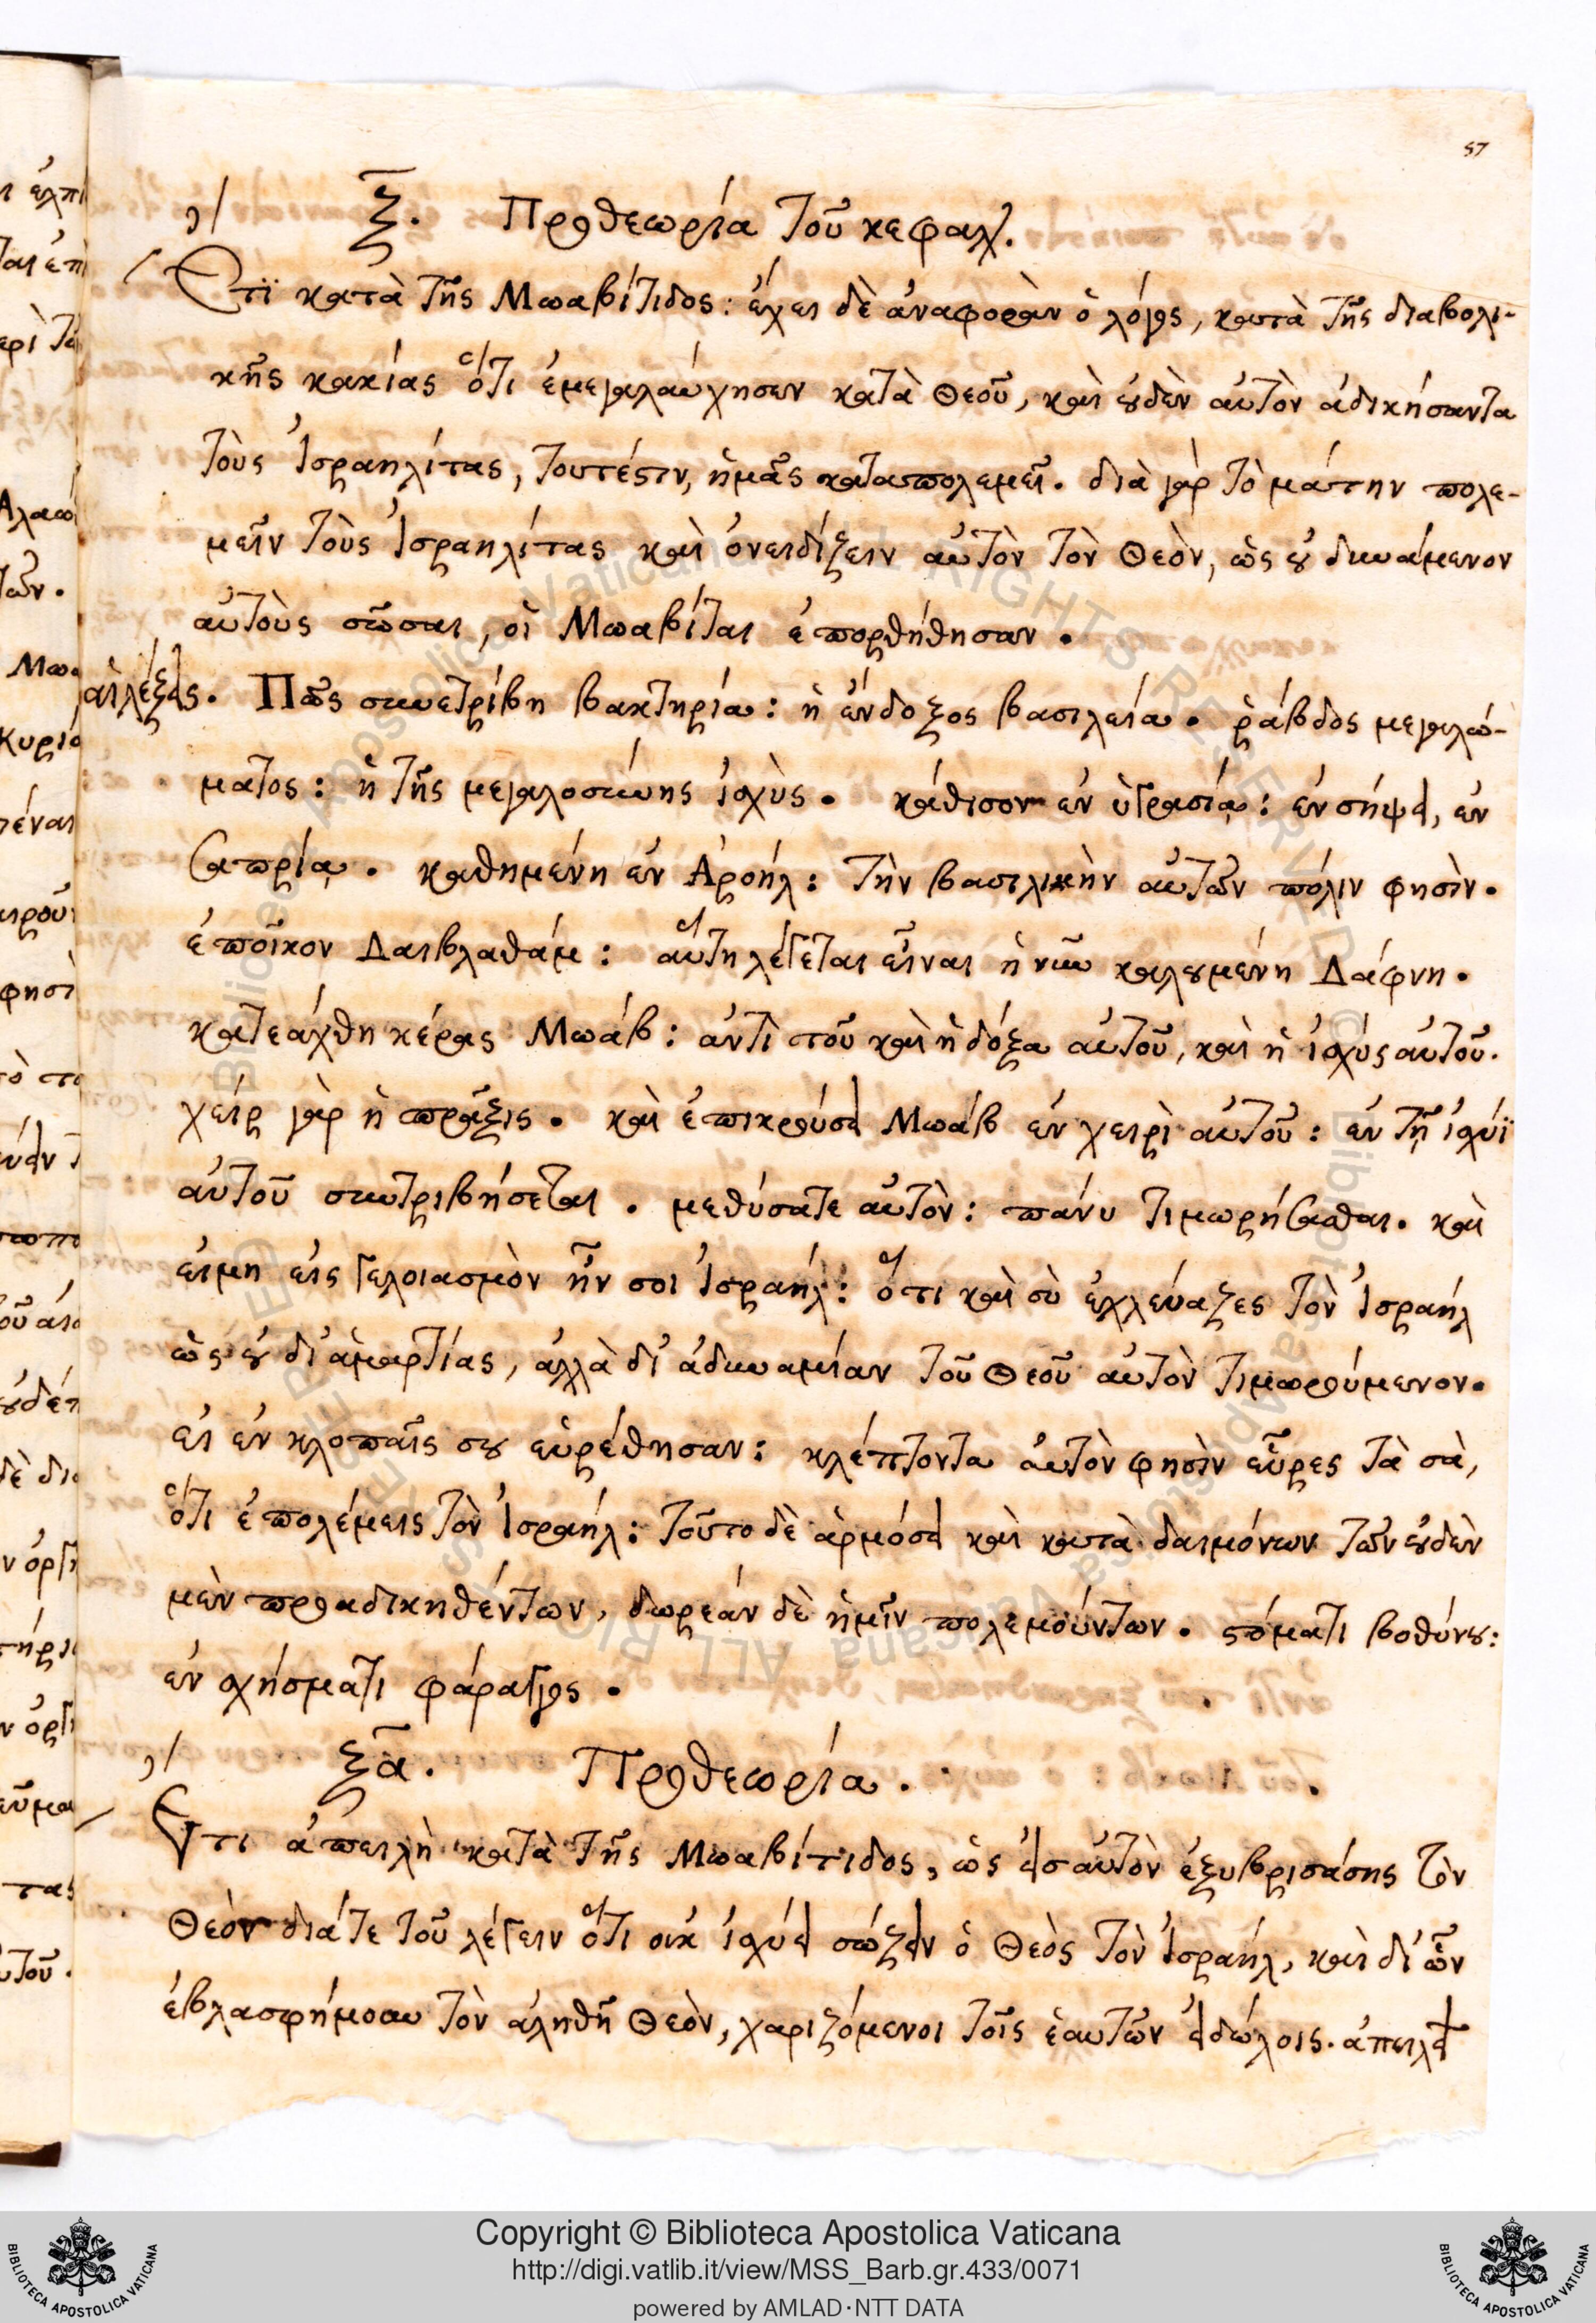 57
ξ. Προθεωρία τοῦ κεφαλ.
Ἔτι κατὰ τῆς Μωαβίτιδος: ἔχει δὲ ἀναφορὰν ὁ λόγος, κατὰ τῆς διαβολι-
κῆς κακίας ὅτι ἐμεγαλαύχησεν κατὰ Θεοῦ, καὶ οὐδὲν αὐτὸν ἀδικήσαντα
τοὺς Ἰσραηλίτας, τουτέστιν, ἡμᾶς καταπολεμεῖ. διὰ γὰρ τὸ μάτην πολε-
μεῖν τοὺς Ἰσραηλίτας καὶ ὀνειδίζειν αὐτὸν τὸν Θεὸν, ὡς οὐ δυνάμενον
αὐτοὺς σῶσαι, οἱ Μωαβίται ἐπορθήθησαν.
αἱ λέξεις. Πῶς συνετρίβη βακτηρία: ἡ ἔνδοξος βασιλεία. ῥάβδος μεγαλώ-
ματος: ἡ τῆς μεγαλοσύνης ἰσχὺς. κάθισον ἐν ὑγρασίᾳ: ἐν σήψει, ἐν
σαπρίᾳ. καθημένη ἐν Ἀροήλ: τὴν βασιλικὴν αὐτῶν πόλιν φησὶν.
ἐποῖκον Δαιβλαθάμ: αὕτη λέγεται εἶναι ἡ νῦν καλουμένη Δάφνη.
κατεάχθη κέρας Μωάβ: ἀντὶ τοῦ καὶ ἡ δόξα αὐτοῦ, καὶ ἡ ἰσχύς αὐτοῦ.
χείρ γὰρ ἡ πρᾶξις. καὶ ἐπικρούσει Μωάβ ἐν χειρὶ αὐτοῦ: ἐν τῇ ἰσχύϊ
αὐτοῦ συντριβήσεται. μεθύσατε αὐτὸν: πάνυ τιμωρήσασθαι. καὶ
εἰμη εἰς γελοιασμὸν ἦν σοι Ἰσραήλ: ὅτι καὶ σὺ ἐχλεύαζες τὸν Ἰσραήλ
ὡς οὐ δι' ἁμαρτίας, ἀλλὰ δι' ἀδυναμίαν τοῦ Θεοῦ αὐτὸν τιμωρούμενον.
εἰ ἐν κλοπαῖς σου εὑρέθησαν: κλέπτοντα αὐτὸν φησὶν εὗρες τὰ σὰ,
ὅτι ἐπολέμεις τὸν Ἰσραήλ: τοῦτο δὲ ἁρμόσει καὶ κατὰ δαιμόνων τῶν οὐδὲν
μὲν προαδικηθέντων, δωρεάν δὲ ἡμῖν πολεμούντων. στόματι βοθύνου:
ἐν σχήσματι φάραγγος.
ξα. Προθεωρία.
Ἔτι ἀπειλὴ κατὰ τῆς Μωαβίτιδος, ὡς εἰσ αὐτὸν ἐξυβρισάσης τὸν
Θεὸν διάτε τοῦ λέγειν ὅτι οὐκ ἰσχύει σώζειν ὁ Θεὸς τὸν Ἰσραήλ, καὶ δι' ὧν
ἐβλασφήμουν τὸν ἀληθῆ Θεὸν, χαριζόμενοι τοῖς ἑαυτῶν εἰδώλοις. ἀπειλεῖ
Copyright © Biblioteca Apostolica Vaticana
http://digi.vatlib.it/view/MSS_Barb.gr.433/0071
powered by AMLAD·NTT DATA
BIBLIOTECA APOSTOLICA VATICANA
BIBLIOTECA APOSTOLICA VATICANA